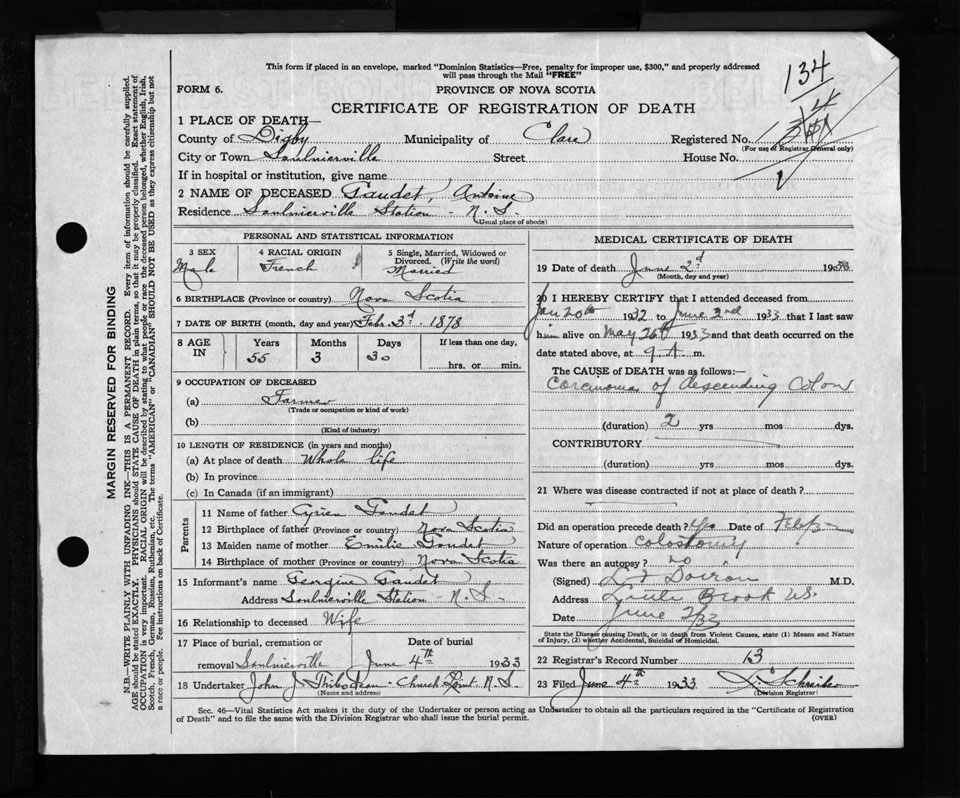 This form if placed in an envelope, marked "Dominion Statistics—Free, penalty for improper use, $300," and properly addressed
will pass through the Mail "FREE"
134
FORM 6.
PROVINCE OF NOVA SCOTIA
CERTIFICATE OF REGISTRATION OF DEATH
1 PLACE OF DEATH—
County of Digby Municipality of Clare Registered No.
(For use of Registrar General only)
City or Town Saulnierville Street House No.
If in hospital or institution, give name
2 NAME OF DECEASED Gaudet, Antoine
Residence Saulnierville Station - N.S.
(Usual place of abode)
PERSONAL AND STATISTICAL INFORMATION
3 SEX 4 RACIAL ORIGIN 5 Single, Married, Widowed or
Divorced. (Write the word)
Male French Married
6 BIRTHPLACE (Province or country) Nova Scotia
7 DATE OF BIRTH (month, day and year) Feb. 3d. 1878
8 AGE IN Years Months Days If less than one day,
55 3 30 hrs. or min.
9 OCCUPATION OF DECEASED
(a) Farmer
(Trade or occupation or kind of work)
(b)
(Kind of industry)
10 LENGTH OF RESIDENCE (in years and months)
(a) At place of death Whole life
(b) In province
(c) In Canada (if an immigrant)
Parents
11 Name of father Cyrien Gaudet
12 Birthplace of father (Province or country) Nova Scotia
13 Maiden name of mother Emilie Gaudet
14 Birthplace of mother (Province or country) Nova Scotia
15 Informant's name Georgine Gaudet
Address Saulnierville Station - N.S.
16 Relationship to deceased Wife
17 Place of burial, cremation or Date of burial
removal Saulnierville June 4th 1933
18 Undertaker John J. Thibodeau - Church Point. N.S.
(Name and address)
MEDICAL CERTIFICATE OF DEATH
19 Date of death June 2d 1933
(Month, day and year)
20 I HEREBY CERTIFY that I attended deceased from
Jan 20th 1932 to June 2nd 1933 that I last saw
him alive on May 26th 1933 and that death occurred on the
date stated above, at 9 A m.
The CAUSE of DEATH was as follows:—
Carcinoma of descending Colon
(duration) 2 yrs mos dys.
CONTRIBUTORY
(duration) yrs mos dys.
21 Where was disease contracted if not at place of death?
Did an operation precede death? Yes Date of Feb
Nature of operation Colostomy
Was there an autopsy? no
(Signed) Doiron M.D.
Address Little Brook N.S.
Date June 2/33
State the Disease causing Death, or in death from Violent Causes, state (1) Means and Nature
of Injury, (2) whether Accidental, Suicidal or Homicidal.
22 Registrar's Record Number 13
23 Filed June 4th 1933
(Division Registrar)
Sec. 46—Vital Statistics Act makes it the duty of the Undertaker or person acting as Undertaker to obtain all the particulars required in the "Certificate of Registration
of Death" and to file the same with the Division Registrar who shall issue the burial permit.
(OVER)
MARGIN RESERVED FOR BINDING
N.B.—WRITE PLAINLY WITH UNFADING INK—THIS IS A PERMANENT RECORD. Every item of information should be carefully supplied.
AGE should be stated EXACTLY. PHYSICIANS should STATE CAUSE OF DEATH in plain terms, so that it may be properly classified. Exact statement of
OCCUPATION is very important. RACIAL ORIGIN will be described by stating to what people or race the deceased person belonged, whether English, Irish,
Scotch, French, German, Russian, Ruthenian, etc. The terms "AMERICAN" or "CANADIAN" SHOULD NOT BE USED as they express citizenship but not
a race or people. See instructions on back of Certificate.